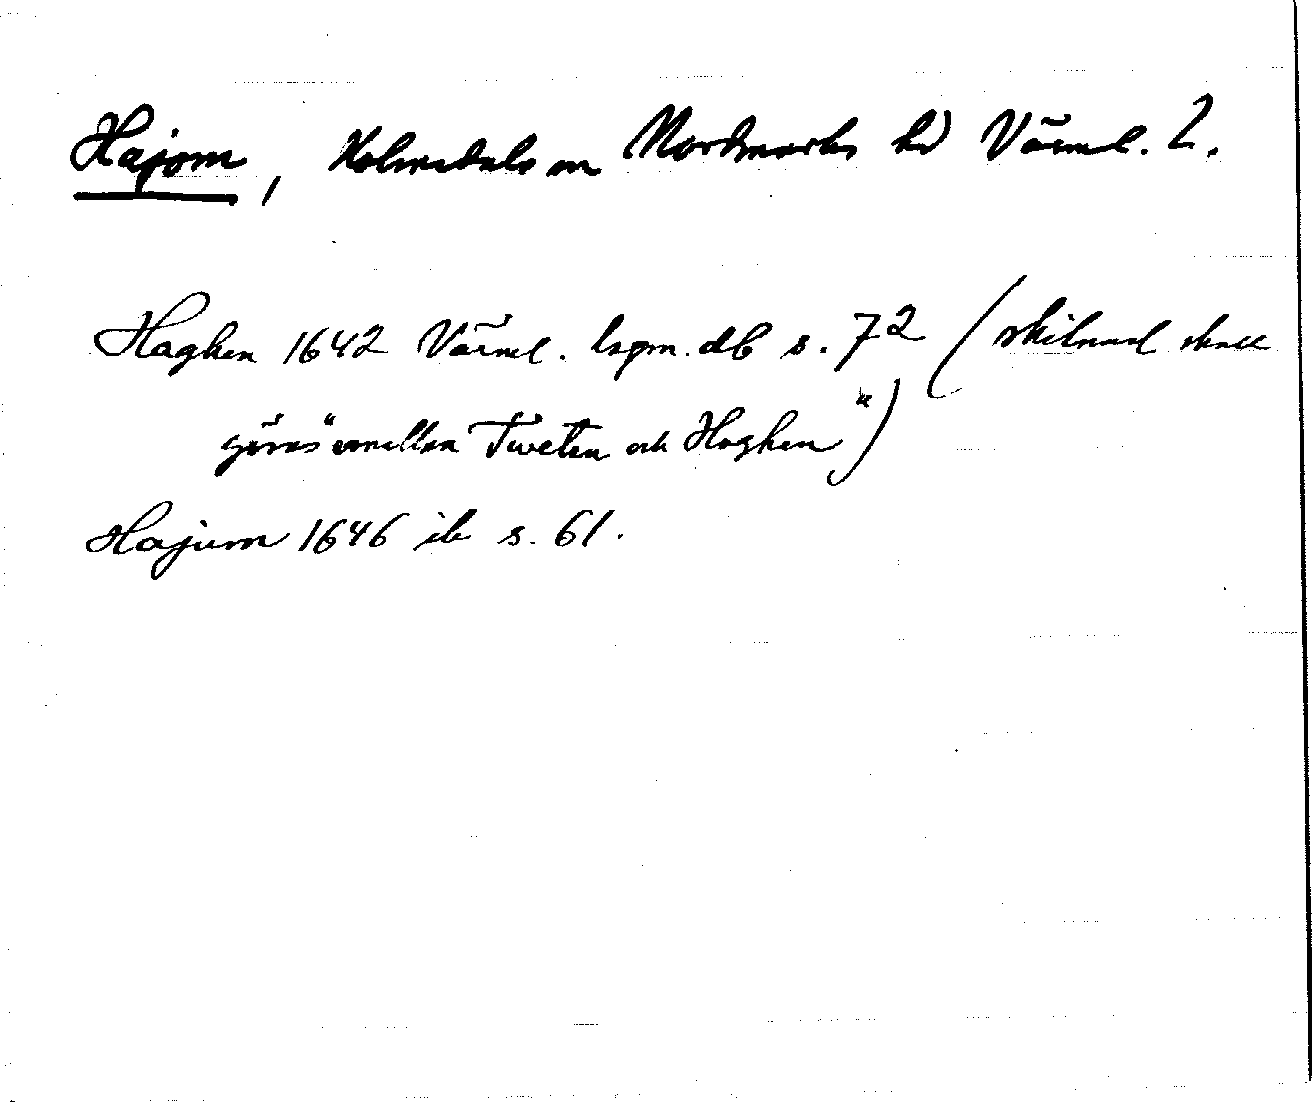 Hajom, Holmedals sn Nordmarks hd Värml. l.
Haghen 1642 Värml. lagm. db s. 72 (skilnad skall
göras "emellan Tweten och Haghen")
Hajum 1646 ib s. 61.